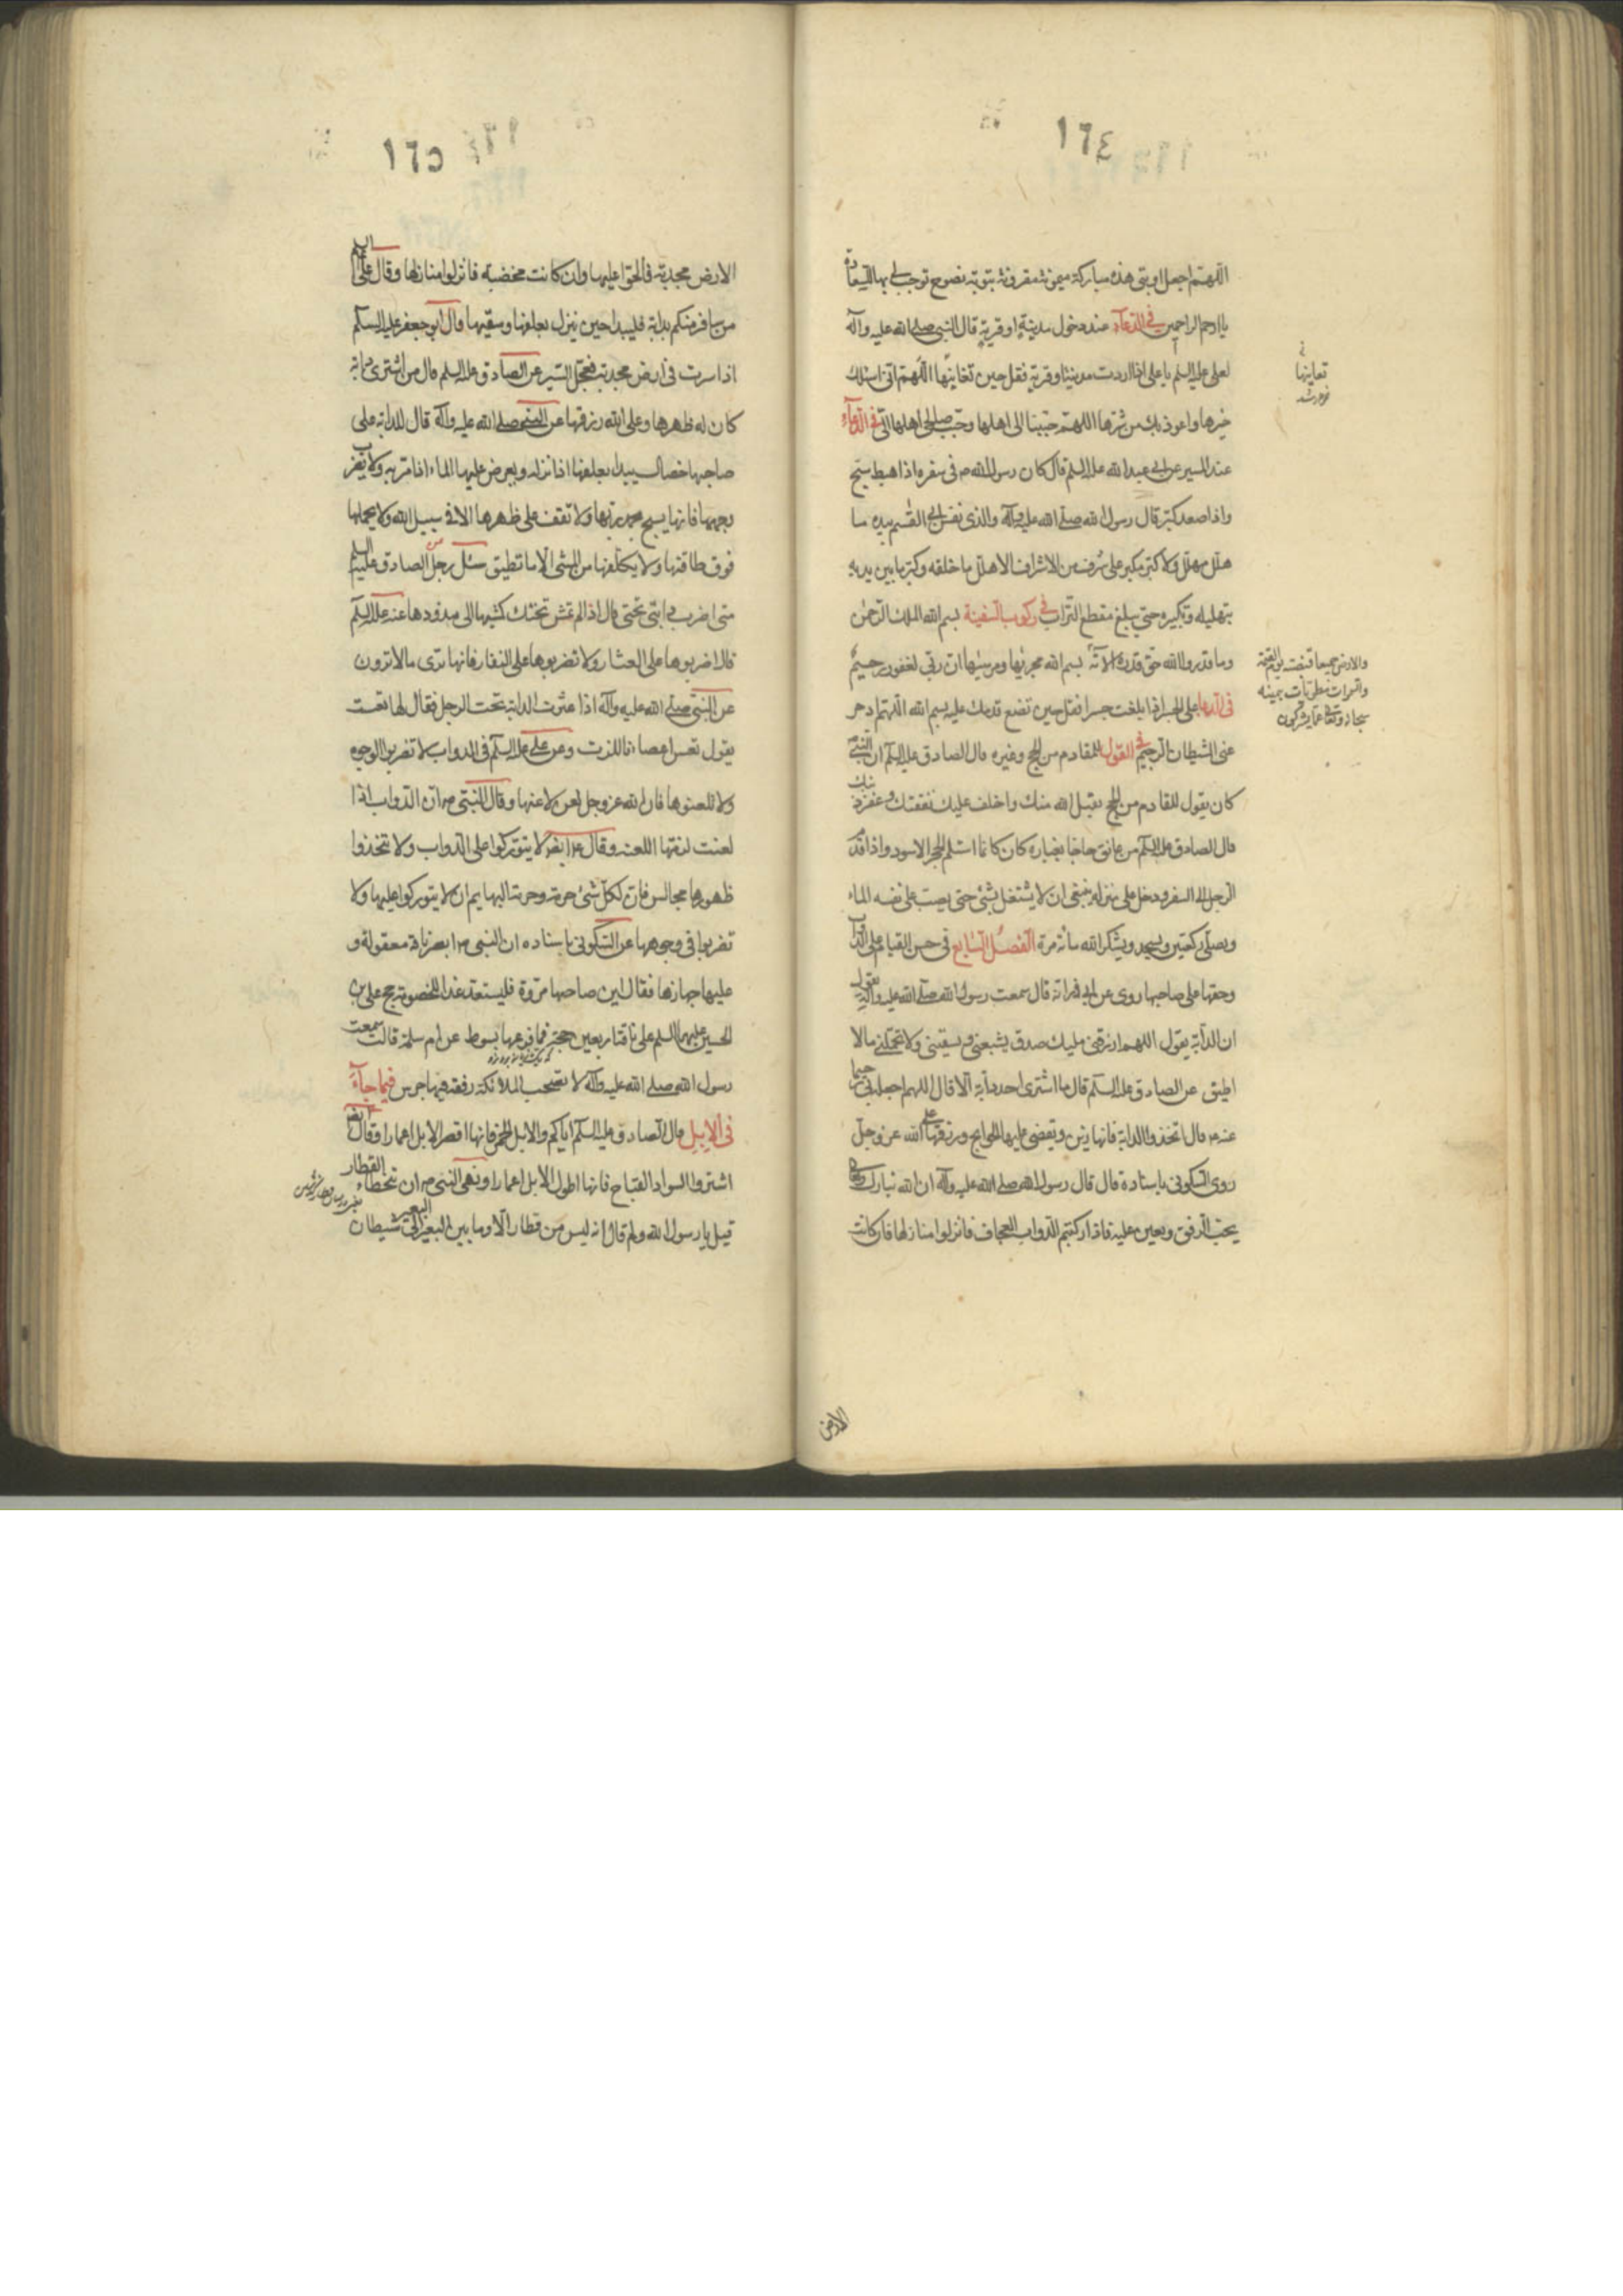 ١٦٤
اللهم اجعل اوبتى هذه مباركة ميمونة مقرونة بتوبة نصوح توجب لى بها السعادة
يا ارحم الراحمين فى الدعاء عند دخول مدينة او قرية قال النبى صلى الله عليه وآله
لعلى عليه السلم يا على اذا اردت مدينة او قرية فقل حين تعاينها اللهم انى اسئلك
خيرها واعوذ بك من شرها اللهم حببنا الى اهلها وحبب صالحى اهلها الينا فى الدعاء
عند المسير عن ابى عبد الله عليه السلم قال كان رسول الله ص فى سفره اذا هبط سبح
واذا صعد كبر قال رسول الله صلى الله عليه وآله والذى نفس ابى القسم بيده ما
هلل مهلل ولا كبر مكبر على شرف من الاشراف الا هلل ما خلفه وكبر ما بين يديه
بتهليله وتكبيره حتى يبلغ مقطع التراب فى ركوب السفينة بسم الله الملك الرحمن
وما قدروا الله حق قدره الآية بسم الله مجريها ومرسيها ان ربى لغفور رحيم
فى الدعا على الجسر اذا بلغت جسرا فقل حين تضع قدمك عليه بسم الله اللهم ادحر
عنى الشيطان الرجيم فى القول للمقادم من الحج وغيره قال الصادق عليه السلم ان النبى
كان يقول للقادم من الحج تقبل الله منك واخلف عليك نفقتك وغفر ذنبك
قال الصادق عليه السلم من عانق حاجا بغباره كان كانما استلم الحجر الاسود واذا قدم
الرجل من السفر ودخل على منزله ينبغى ان لا يشتغل بشئ حتى يصب على نفسه الماء
ويصلى ركعتين ويسجد ويشكر الله مائة مرة الفصل السابع فى حسن القيام على الدواب
وحقها على صاحبها روى عن ابى ذر انه قال سمعت رسول الله صلى الله عليه وآله يقول
ان الدابة يقول اللهم ارزقنى مليك صدق يشبعنى ويسقينى ولا تحملنى مالا
اطيق عن الصادق عليه السلم قال ما اشترى احد دابة الا قال اللهم اجعله بى رحيما
عنه ع قال اتخذوا الدابة فانها زين ويقضى عليها الحوايج ورزقها على الله عز وجل
روى السكونى باسناده قال قال رسول الله صلى الله عليه وآله ان الله تبارك وتعالى
يحب الرفق ويعين عليه فاذا ركبتم الدواب العجاف فانزلوا منازلها فان كانت
تعاينها
والارض جميعا قبضته يوم القيمة
والسموات مطويات بيمينه
سبحانه وتعالى عما يشركون
الارض
١٦٥
الارض مجدبة فالحوا عليها وان كانت مخضبة فانزلوا منازلها وقال على السلم
من سافر منكم بدابة فليبدا حين ينزل بعلفها وسقيها وقال ابو جعفر عليه السلم
اذا سرت فى ارض مجدبة فعجل السير عن الصادق عليه السلم قال من اشترى دابة
كان له ظهرها وعلى الله رزقها عن النبى صلى الله عليه وآله قال للدابة على
صاحبها خصال يبدا بعلفها اذا نزل ويعرض عليها الماء اذا مر به ولا يضرب
وجهها فانها يسبح بحمد ربها ولا تقف على ظهرها الا فى سبيل الله ولا يحملها
فوق طاقتها ولا يكلفها من المشى الا ما تطيق سئل رجل الصادق عليه السلم
متى اضرب دابتى تحتى قال اذا لم تمش تحتك كمشيها الى مدودها عنه عليه السلم
قال اضربوها على العثار ولا تضربوها على النفار فانها ترى مالا ترون
عن النبى صلى الله عليه وآله اذا عثرت الدابة تحت الرجل فقال لها تعست
يقول تعس اعصانا للرب وعن على عليه السلم فى الدواب لا تضربوا الوجوه
ولا تلعنوها فان الله عز وجل لعن لاعنها وقال النبى ص ان الدواب اذا
لعنت لزمتها اللعنة وقال ايضا لا يتوركوا على الدواب ولا تتخذوا
ظهورها مجالس فان لكل شئ حرمة وحرمة البهايم ان لا يتوركوا عليها ولا
تضربوا فى وجوهها عن السكونى باسناده ان النبى ص ابصر ناقة معقولة و
عليها جهازها فقال اين صاحبها مروة فليستعد غدا للخصومة حج على بن
الحسين عليهما السلم على ناقته اربعين حجة فما قرعها بسوط عن ام سلمة قالت سمعت
رسول الله صلى الله عليه وآله لا تصحب الملائكة رفقة فيها جرس فيما جاء
فى الابل قال الصادق عليه السلم اياكم والابل الحمر فانها اقصر الابل اعمارا وقال ايضا
اشتروا السواد القباح فانها اطول الابل اعمارا ونهى النبى ص ان يتخطا القطار
قيل يا رسول الله ولم قال انه ليس من قطار الا وما بين البعير الى البعير شيطان